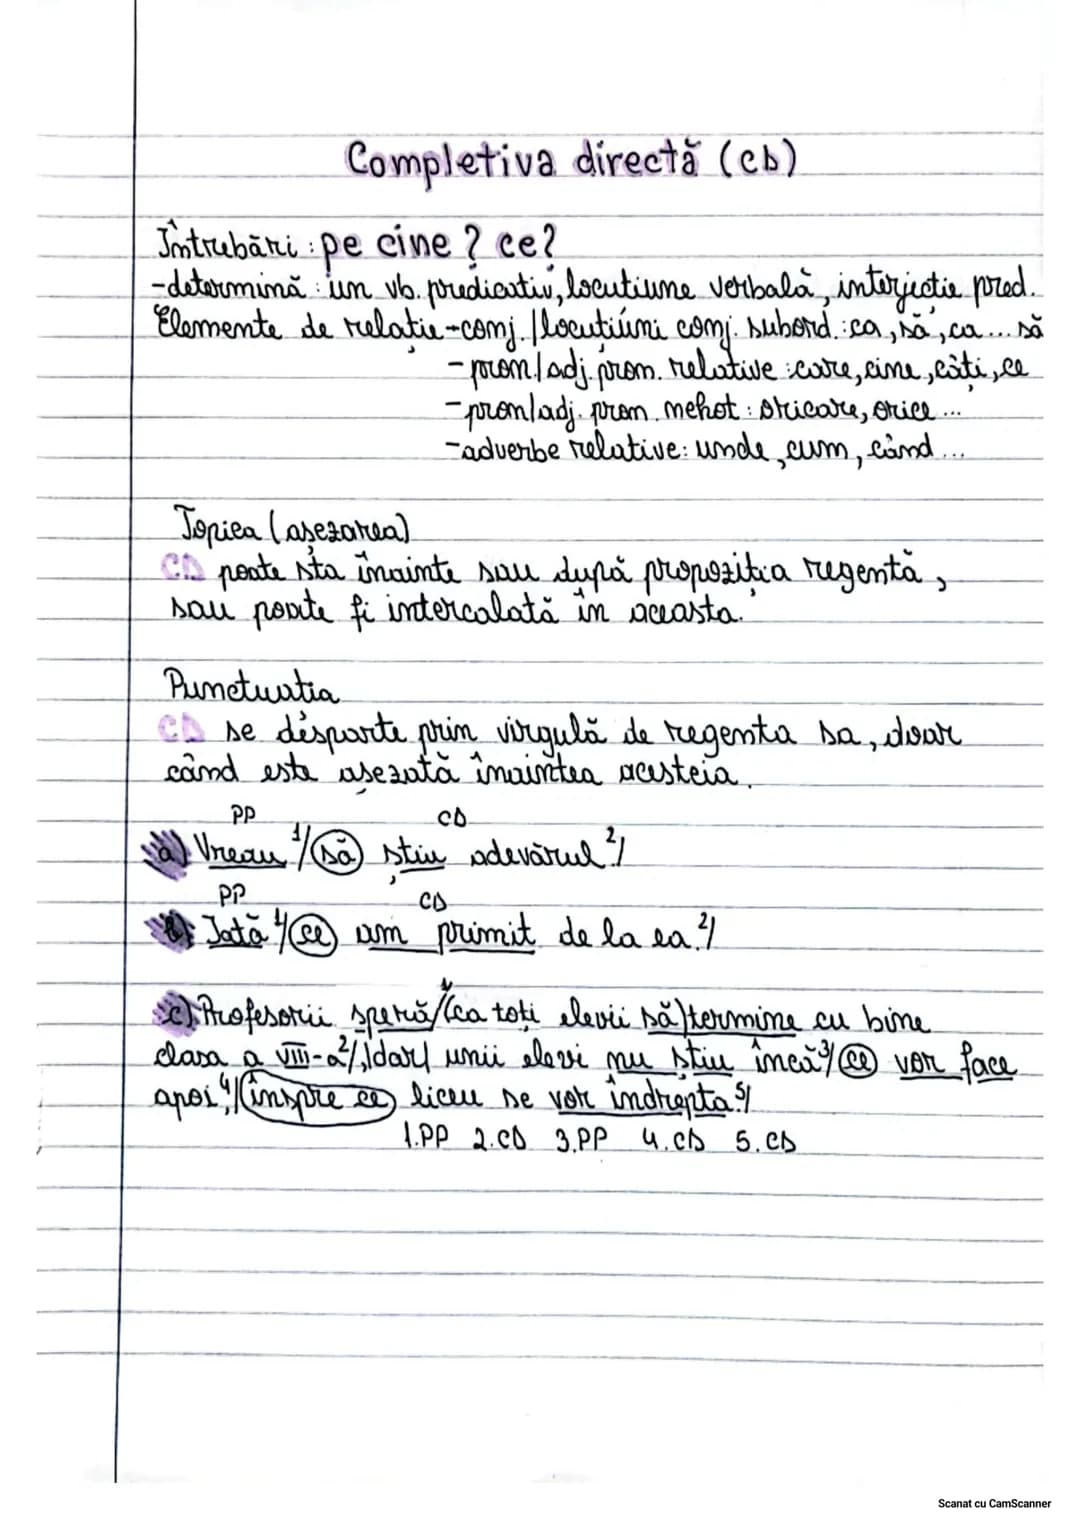 Completiva directă (CD)
Întrebări: pe cine? ce?
-determină: un vb. predicativ, locuțiune verbală, interjecție pred.
Elemente de relație-conj./locuțiuni conj. subord.: ca, să, ca... să
-pron./adj. pron. relative: care, cine, câți, ce
-pron/adj. pron. nehot: oricare, orice ...
-adverbe relative: unde, cum, când ...
Topica (așezarea)
CD poate sta înainte sau după propoziția regentă,
sau poate fi intercalată în aceasta.
Punctuația
CD se desparte prin virgulă de regenta sa, doar
când este așezată înaintea acesteia.
PP CD
a) Vreau 1/ să știu adevărul 2/
PP CD
b) Iată 1/ ce am primit de la ea. 2/
c) Profesorii speră 1/ (ca toți elevii să) termine cu bine
clasa a VIII-a 2/, dar/ unii elevi nu știu încă 3/ ce vor face
apoi, 4/ înspre ce liceu se vor îndrepta. 5/
1.PP 2.CD 3.PP 4.CD 5.CD
Scanat cu CamScanner